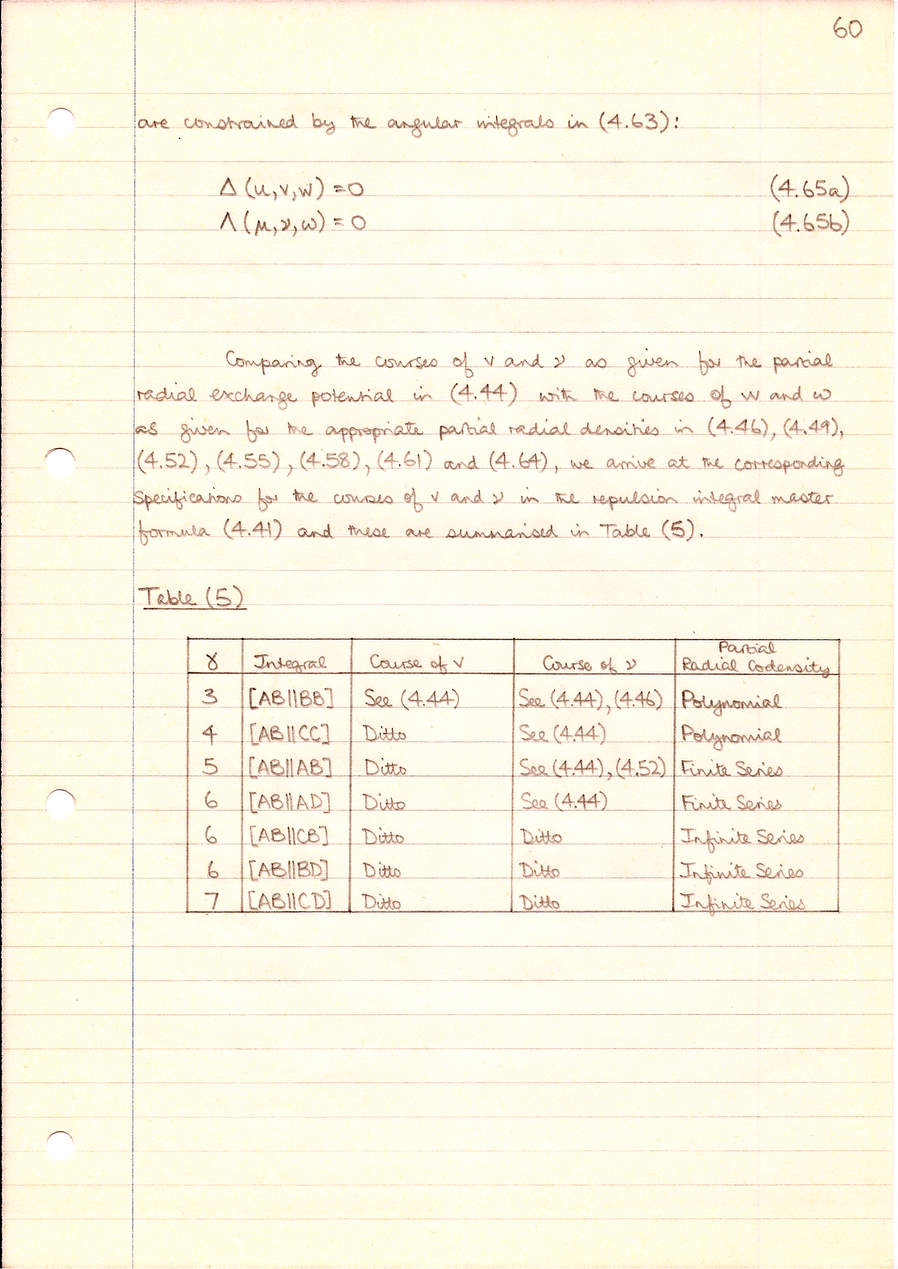 60
are constrained by the angular integrals in (4.63):
Δ (u,v,w) = 0 (4.65a)
Λ (μ,ν,ω) = 0 (4.65b)
Comparing the courses of v and ν as given for the partial
radial exchange potential in (4.44) with the courses of w and ω
as given for the appropriate partial radial densities in (4.46), (4.49),
(4.52), (4.55), (4.58), (4.61) and (4.64), we arrive at the corresponding
specifications for the courses of v and ν in the repulsion integral master
formula (4.41) and these are summarised in Table (5).
Table (5)
γ Integral Course of v Course of ν Partial Radial Codensity
3 [AB||BB] See (4.44) See (4.44), (4.46) Polynomial
4 [AB||CC] Ditto See (4.44) Polynomial
5 [AB||AB] Ditto See (4.44), (4.52) Finite Series
6 [AB||AD] Ditto See (4.44) Finite Series
6 [AB||CB] Ditto Ditto Infinite Series
6 [AB||BD] Ditto Ditto Infinite Series
7 [AB||CD] Ditto Ditto Infinite Series